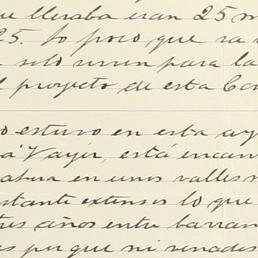 ue llevaba eran 25 m
25. Lo poco que sa
solo sirven para la
l proyecto de esta Con
o estuvo en esta ay
a Vayer, está encar
atura en unos valles
stante extensos lo que
tres años entre barran
es porque ni venados